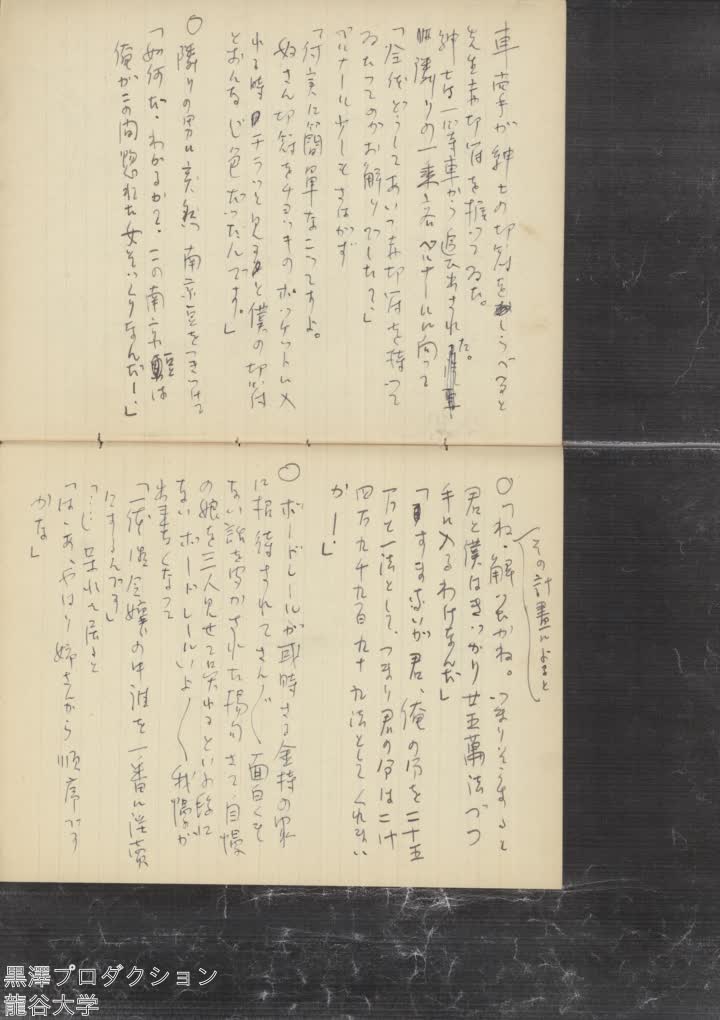 車掌が紳士の切符をしらべると
先生赤切符を握つてゐた。
紳士は一等車から追出された。
隣りの一乗客ベルナールに向つて
「全体どうしてあいつ赤切符を持つて
ゐたつてのがお解りでしたて」
ベルナール少しもさはがず
「何実に簡単なこつてすよ。
奴さん切符をチヨツキのポツケツトに入
れる時チラツと見ると僕の切符
とおんなじ色だつたんです。」
○隣りの男に突然南京豆をつきつけて
「如何だ、わかるかて、この南京豆は
俺がこの間惚れた女そつくりなんだー。」
その計畫によると
○「ね、解つたかね。つまりさうすると
君と僕はきつかり廿五萬法づつ
手に入るわけなんだ」
「すまないが君、俺の分を二十五
万と一法として、つまり君の分は二十
四万九千九百九十九法としてくれまい
かー。」
○ボードレールが或時さる金持の家
に招待されてさんざ〱面白くも
ない話を聞かされた揚句さて、自慢
の娘を三人見せて呉れるといふ段に
ない ボードレールいよ〱我慢が
出来なくなつて
「一体 令嬢の中誰を一番に淫売
にするんです」
「…」呆れて居ると
「はゝあ、やはり姉さんから順序です
かな」
黒澤プロダクション
龍谷大学